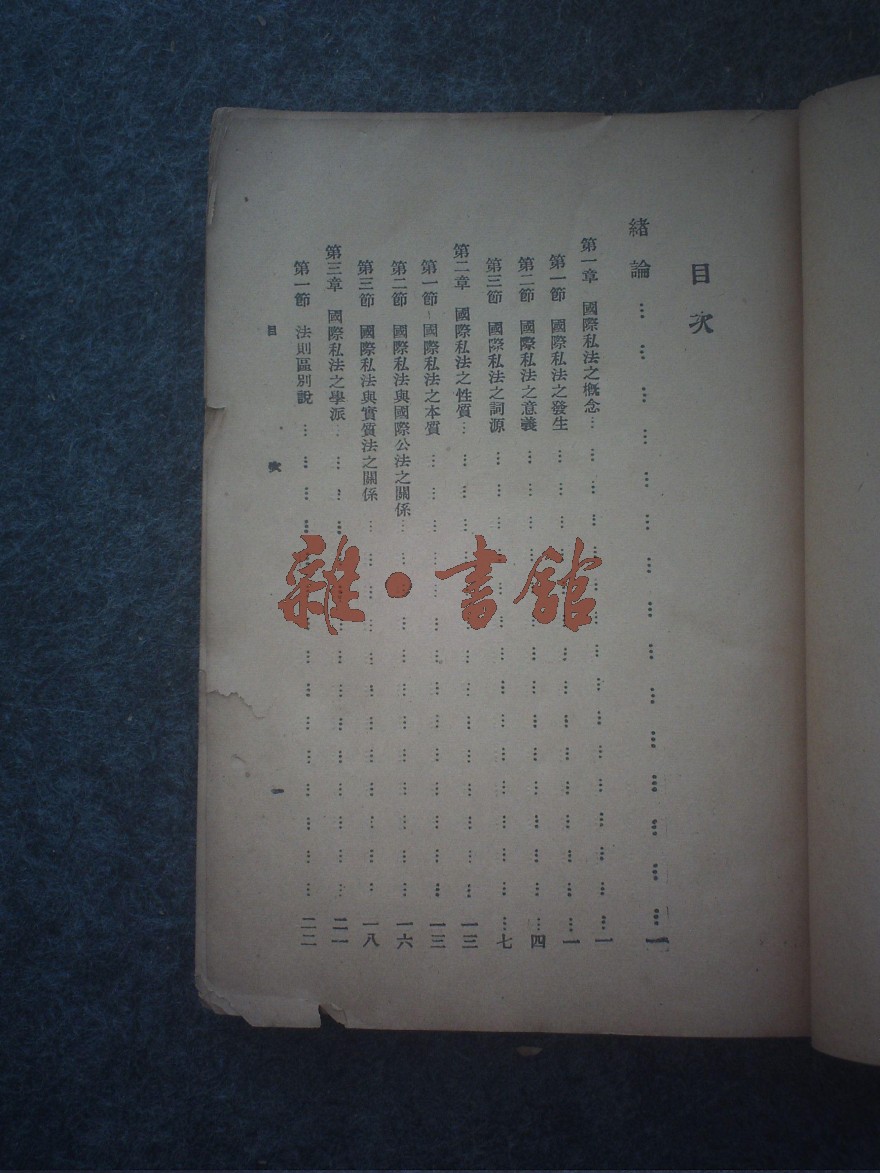 目次
緒論…………………………………………一
第一章 國際私法之概念…………………………………一
第一節 國際私法之發生…………………………………一
第二節 國際私法之意義…………………………………四
第三節 國際私法之詞源…………………………………七
第二章 國際私法之性質…………………………………一三
第一節 國際私法之本質…………………………………一三
第二節 國際私法與國際公法之關係…………………………………一六
第三節 國際私法與實質法之關係…………………………………一八
第三章 國際私法之學派…………………………………二一
第一節 法則區別說…………………………………二二
目次 一
雜•書館